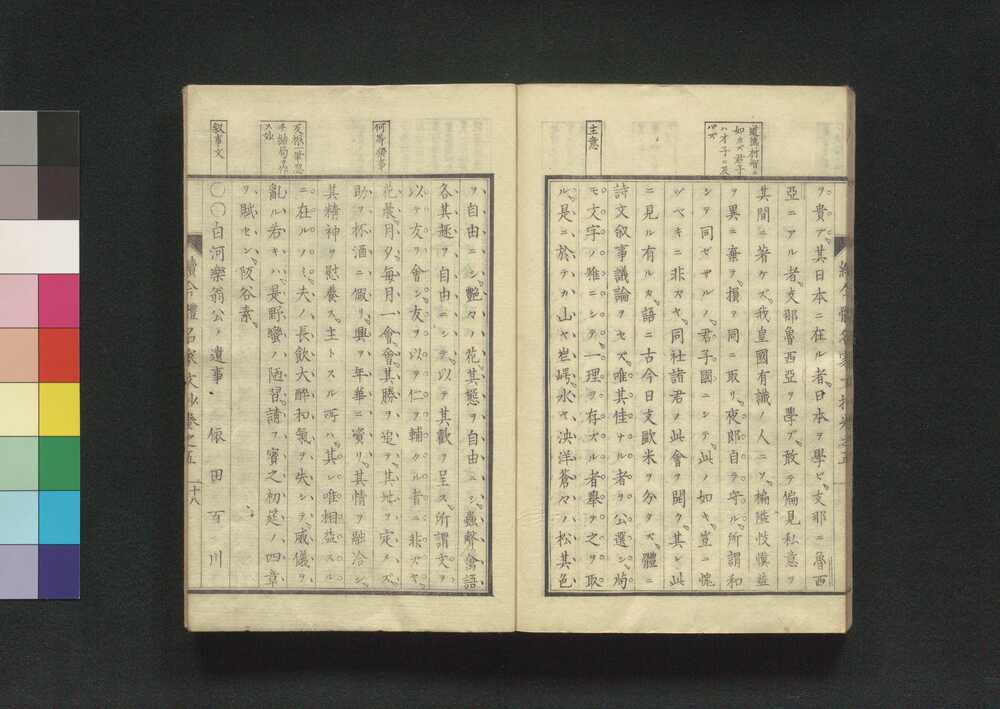 ヲ貴ブ其日本ニ在ル者日本ヲ學ビ支那ニ魯西
亞ニアル者支那魯西亞ヲ學ブ敢テ偏見私意ヲ
其間ニ著ケズ我皇國有識ノ人ニソ褊隘忮
ヲ異ニ棄ヲ損ヲ同ニ取リ夜郎自ラ守ル所謂和
シテ同ゼザルノ君子國ニシテ此ノ如キ豈ニ愧
ヅベキニ非ズヤ同社諸君ノ此會ヲ開ク其レ此
ニ見ル有ルカ語ニ古今日支歐米ヲ分タズ體ニ
詩文叙事議論ヲセズ唯其佳ナル者ヲ公選シ
モ文字ノ雅ニシテ一理ヲ存スル者擧テ之ヲ取
ル是ニ於テカ山ヤ岩崿水ヤ泱洋蒼々ノ松其色
主意
ヲ自由ニシ艶々ノ花其態ヲ自由ニシ蟲聲禽語
各其趣ヲ自由ニシテ以テ其歡ヲ呈ス所謂文ヲ
以テ友ヲ會シ友ヲ以テ仁ヲ輔クル者ニ非ズヤ
花晨月夕毎月一會會其勝ヲ追ヲ其地ヲ定メズ
助ヲ杯酒ニ假リ興ヲ年華ニ資リ其情ヲ融洽シ
其精神ヲ慰養ス主トスル所ハ其レ唯相益スル
ニ在ルノミ夫ノ長飲大酔和氣ヲ失シテ威儀ヲ
亂ル若キハ是野蠻ノ陋習請フ賓之初筵ノ四章
ヲ賦セン阪谷素
叙事文
〇〇白河樂翁公ノ遺事 依田百川
續今體名家文抄卷之五 二十八